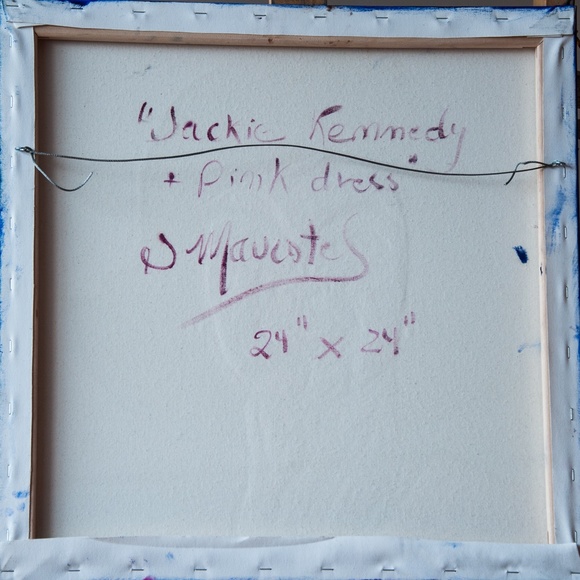 "Jackie Kennedy
+ Pink dress"
24" x 24"